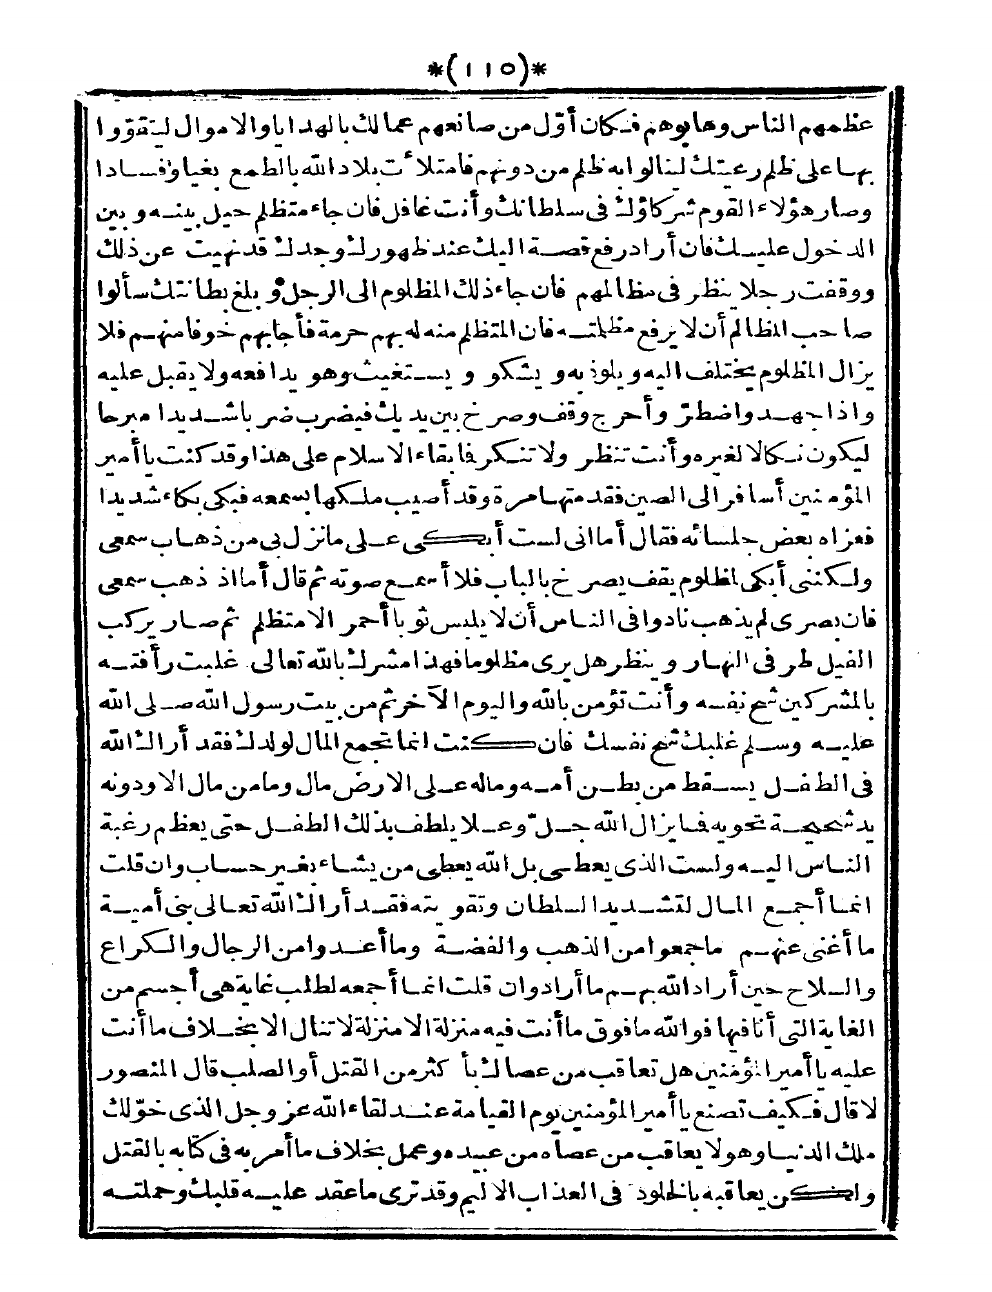 *(١١٥)*
عظمهم الناس وهابوهم فكان أوّل من صانعهم عمالك بالهدايا والاموال ليتقووا
بها على ظلم رعيتك لينالوا به ظلم من دونهم فامتلأت بلاد الله بالطمع بغيا وفسادا
وصار هؤلاء القوم شركاؤك فى سلطانك وأنت غافل فان جاء متظلم حيل بينه وبين
الدخول عليك فان أراد رفع قصة اليك عند ظهورك وجدك قد نهيت عن ذلك
ووقفت رجلا ينظر فى مظالمهم فان جاء ذلك المظلوم الى الرجل وبلغ بطانتك سألوا
صاحب المظالم أن لا يرفع مظلمته فان المتظلم منه له بهم حرمة فأجابهم خوفا منهم فلا
يزال المظلوم يختلف اليه ويلوذ به ويشكو ويستغيث وهو يدافعه ولا يقبل عليه
واذا جهد واضطرّ وأحرج وقف وصرخ بين يديك فيضرب ضربا شديدا مبرحا
ليكون نكالا لغيره وأنت تنظر ولا تنكر فابقاء الاسلام على هذا وقد كنت يا أمير
المؤمنين أسافر الى الصين فقدمتها مرة وقد أصيب ملكها بسمعه فبكى بكاء شديدا
فعزاه بعض جلسائه فقال أما انى لست أبكى على ما نزل بى من ذهاب سمعى
ولكننى أبكى لمظلوم يقف يصرخ بالباب فلا أسمع صوته ثم قال أما اذ ذهب سمعى
فان بصرى لم يذهب نادوا فى الناس أن لا يلبس ثوبا أحمر الا متظلم ثم صار يركب
الفيل طرفى النهار وينظر هل يرى مظلوما فهذا مشرك بالله تعالى غلبت رأفته
بالمشركين شح نفسه وأنت تؤمن بالله واليوم الآخر ثم من بيت رسول الله صلى الله
عليه وسلم غلبك شح نفسك فان كنت انما تجمع المال لولدك فقد أراك الله
فى الطفل يسقط من بطن أمه وماله على الارض مال وما من مال الا ودونه
يد شحيحة تحويه فما يزال الله جلّ وعلا يلطف بذلك الطفل حتى يعظم رغبة
الناس اليه ولست الذى يعطى بل الله يعطى من يشاء بغير حساب وان قلت
انما أجمع المال لتشديد السلطان وتقويته فقد أراك الله تعالى بنى أمية
ما أغنى عنهم ما جمعوا من الذهب والفضة وما أعدوا من الرجال والكراع
والسلاح حين أراد الله بهم ما أراد وان قلت انما أجمعه لطلب غاية هى أجسم من
الغاية التى أنا فيها فوالله ما فوق ما أنت فيه منزلة الا منزلة لا تنال الا بخلاف ما أنت
عليه يا أمير المؤمنين هل تعاقب من عصاك بأكثر من القتل أو الصلب قال المنصور
لا قال فكيف تصنع يا أمير المؤمنين يوم القيامة عند لقاء الله عز وجل الذى خوّلك
ملك الدنيا وهو لا يعاقب من عصاه من عبيده وعمل بخلاف ما أمر به فى كتابه بالقتل
ولكن يعاقبه بالخلود فى العذاب الاليم وقد ترى ما عقد عليه قلبك وحملته